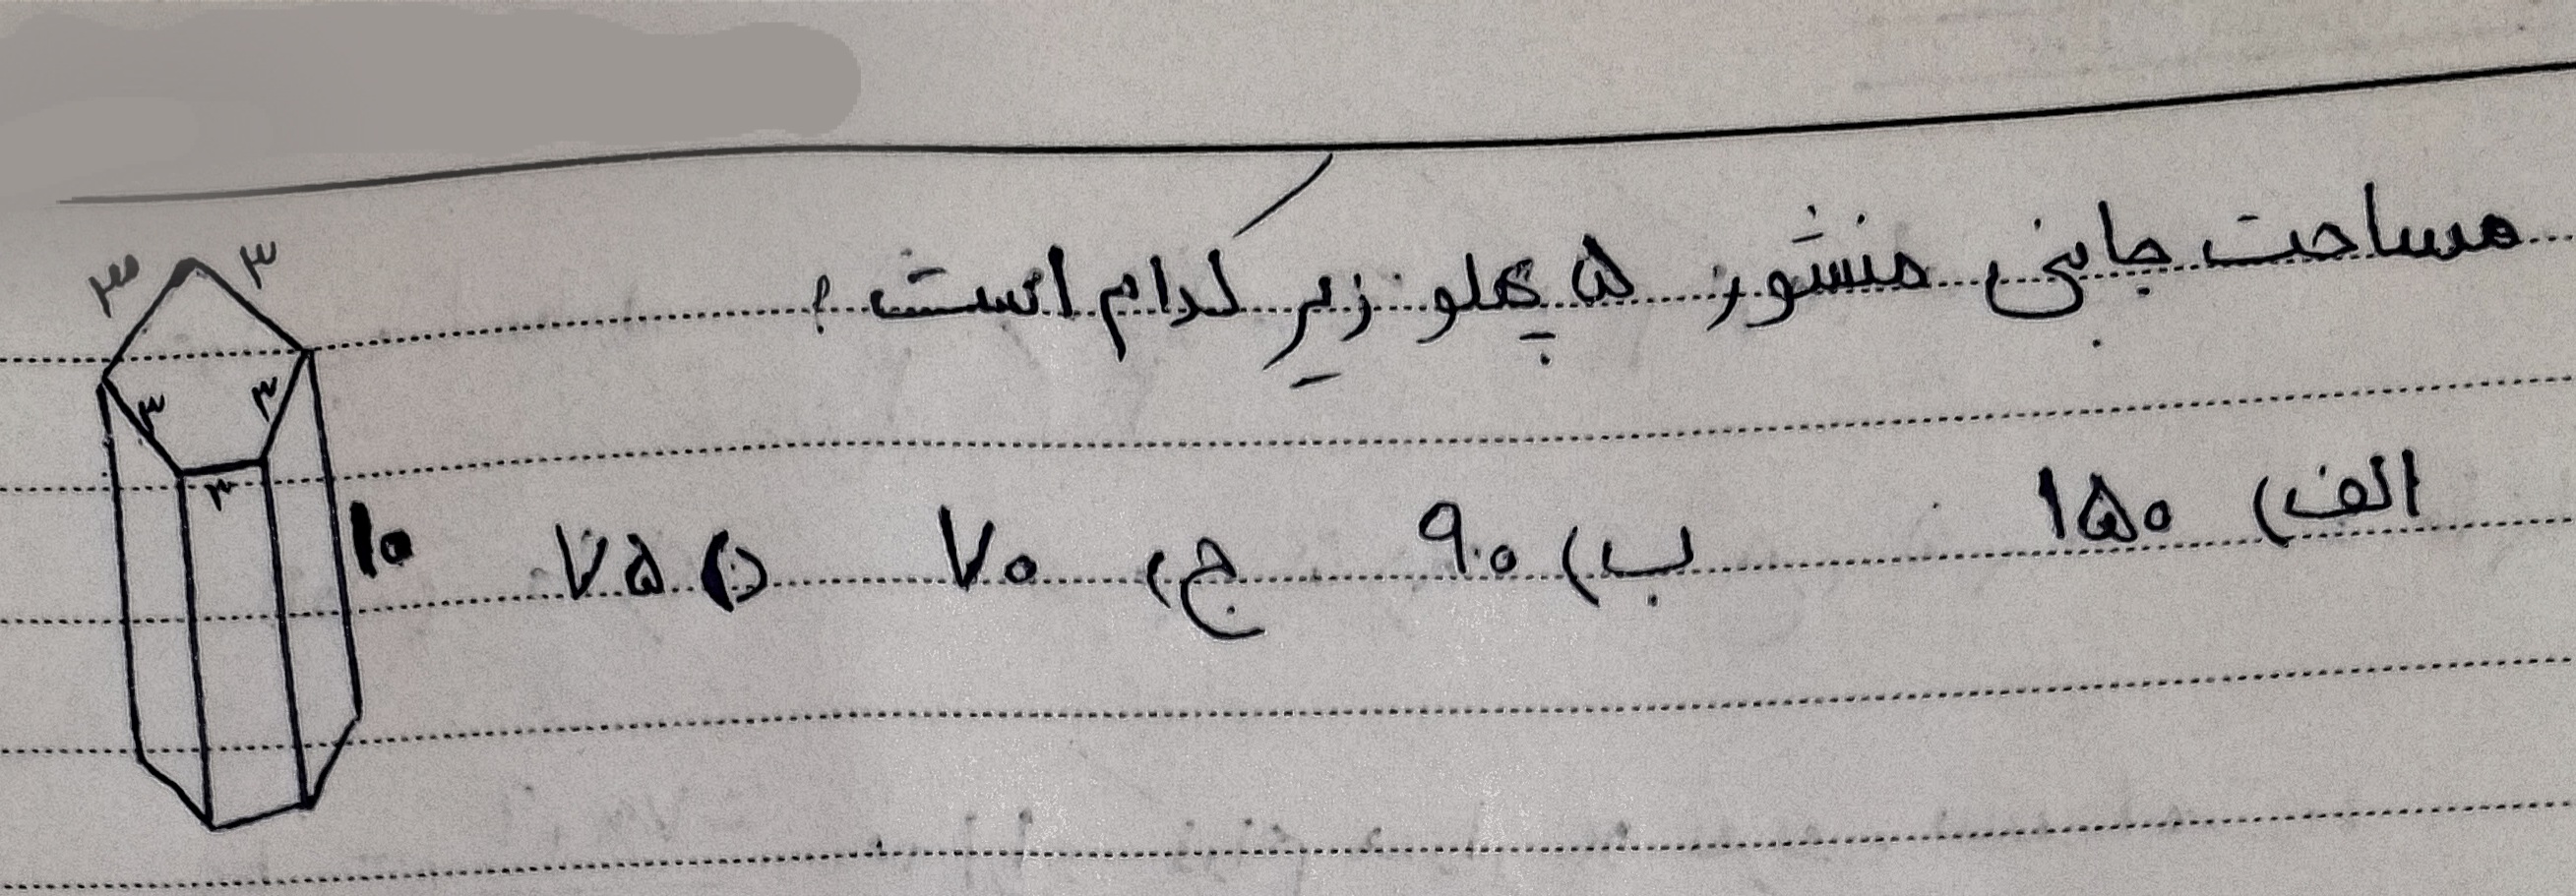 مساحت جانبی منشور ۵ پهلو زیرِ کدام است ؟
الف) ۱۵۰ ب) ۹۰ ج) ۷۰ د) ۷۵
۳ ۳
۳ ۳
۳
۱۰